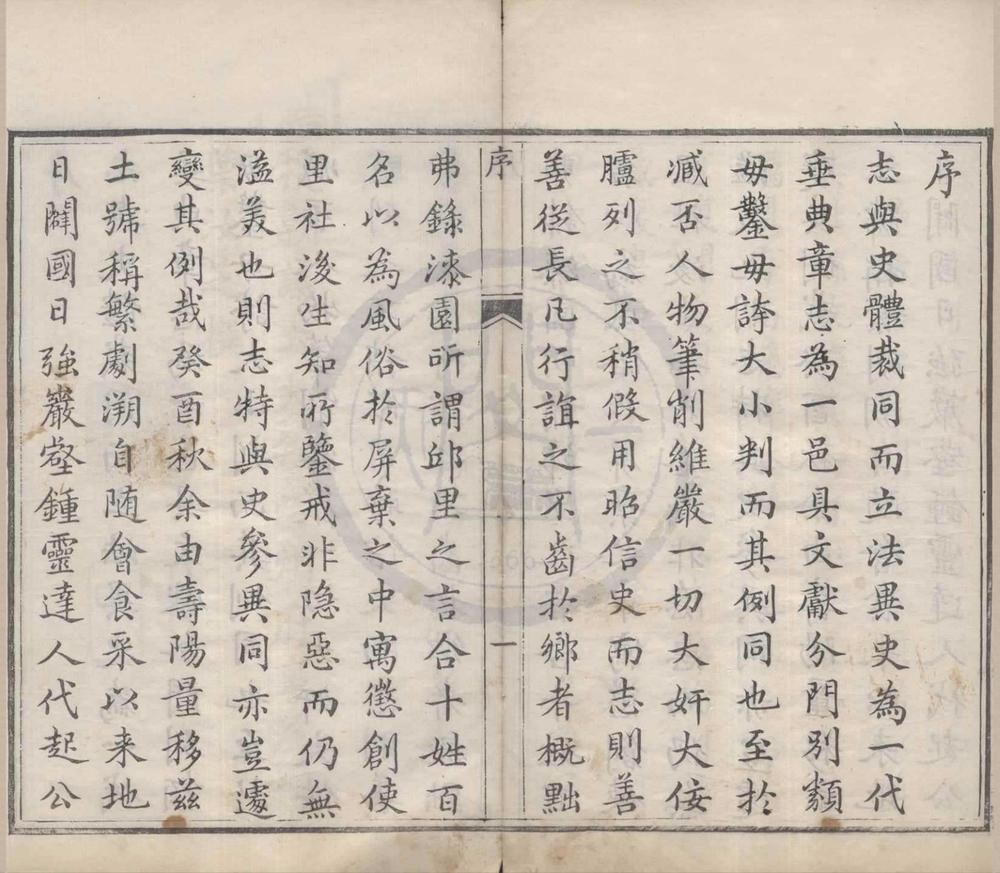 序
志與史體裁同而立法異史為一代
垂典章志為一邑具文獻分門別類
毋鑿毋誇大小判而其例同也至於
臧否人物筆削維嚴一切大奸大佞
臚列之不稍假用昭信史而志則善
善從長凡行誼之不齒於鄉者概黜
序
一
弗錄漆園所謂邱里之言合十姓百
名以為風俗於屏棄之中寓懲創使
里社後生知所鑒戒非隱惡而仍無
溢美也則志特與史參異同亦豈遽
變其例哉癸酉秋余由壽陽量移茲
土號稱繁劇溯自隨會食采以来地
日闢國日強巖壑鍾靈達人代起公